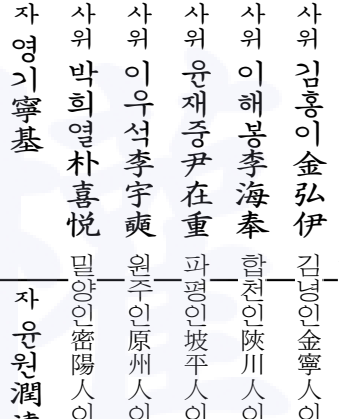 사위 김홍이金弘伊 김녕인金寧人인
사위 이해봉李海奉 합천인陜川人인
사위 윤재중尹在重 파평인坡平人인
사위 이우석李宇奭 원주인原州人인
사위 박희열朴喜悦 밀양인密陽人인
자 영기寧基
자 윤원潤